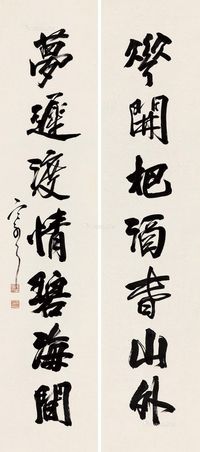 開把酒青山外
夢遲渡情碧海間